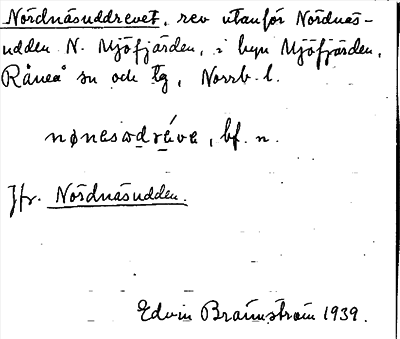 Nordnäsuddrevet, rev utanför Nordnäs-
udden N. Mjöfjärden, i byn Mjöfjärden,
Råneå sn och tg, Norrb. l.
nønesωdrέve, bf. n.
Jfr. Nordnäsudden.
Edvin Brännström 1939.